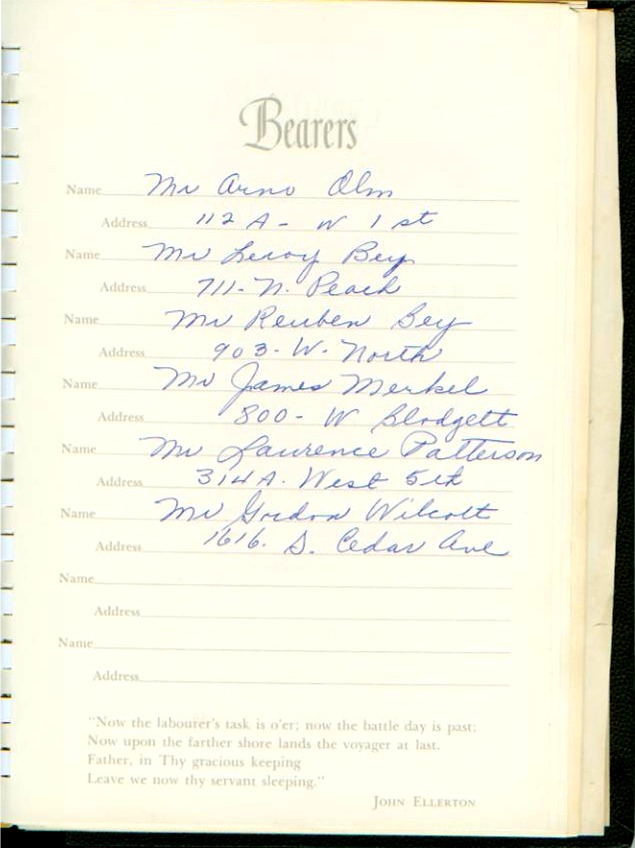 Bearers
Name Mr Arno Olm
Address 112 A - W 1 st
Name Mr Leroy Bey
Address 711 - N. Peach
Name Mr Reuben Bey
Address 903 - W. North
Name Mr James Merkel
Address 800 - W Blodgett
Name Mr Laurence Patterson
Address 314 A. West 5th
Name Mr Gordon Wilcott
Address 1616. S. Cedar Ave
Name
Address
Name
Address
"Now the labourer's task is o'er; now the battle day is past;
Now upon the farther shore lands the voyager at last.
Father, in Thy gracious keeping
Leave we now thy servant sleeping."
John Ellerton